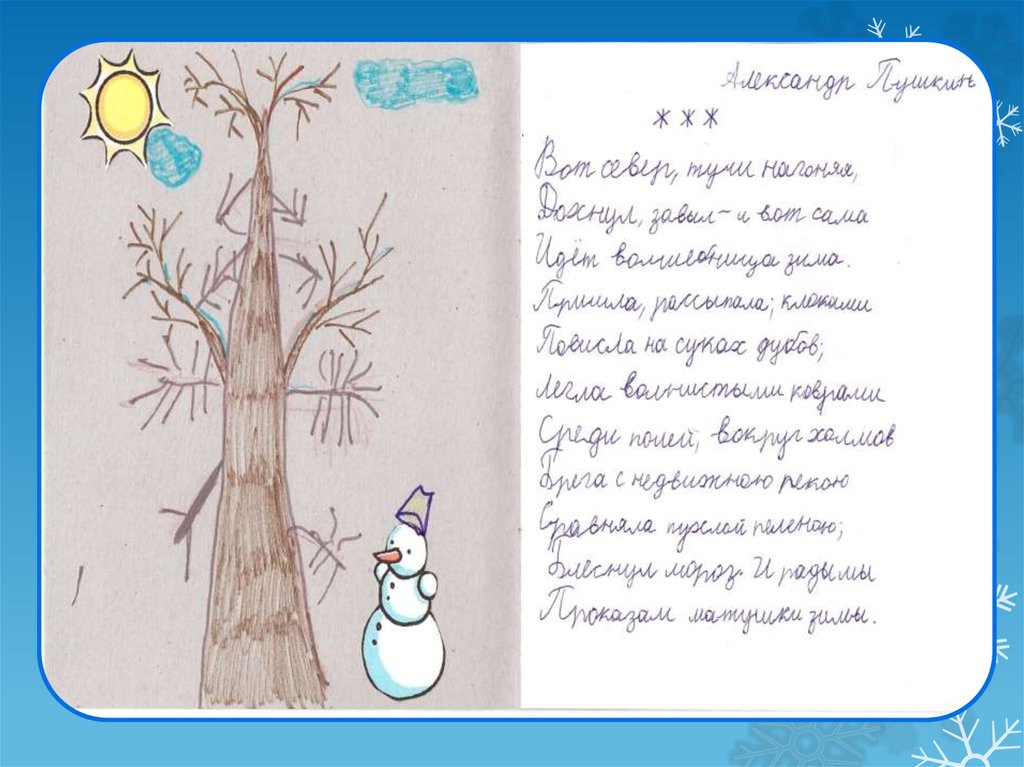 Александр Пушкин
* * *
Вот север, тучи нагоняя,
Дохнул, завыл - и вот сама
Идёт волшебница зима.
Пришла, рассыпала; клоками
Повисла на суках дубов;
Легла волнистыми коврами
Среди полей, вокруг холмов
Брега с недвижною рекою
Сравняла пухлой пеленою;
Блеснул мороз. И рады мы
Проказам матушки зимы.